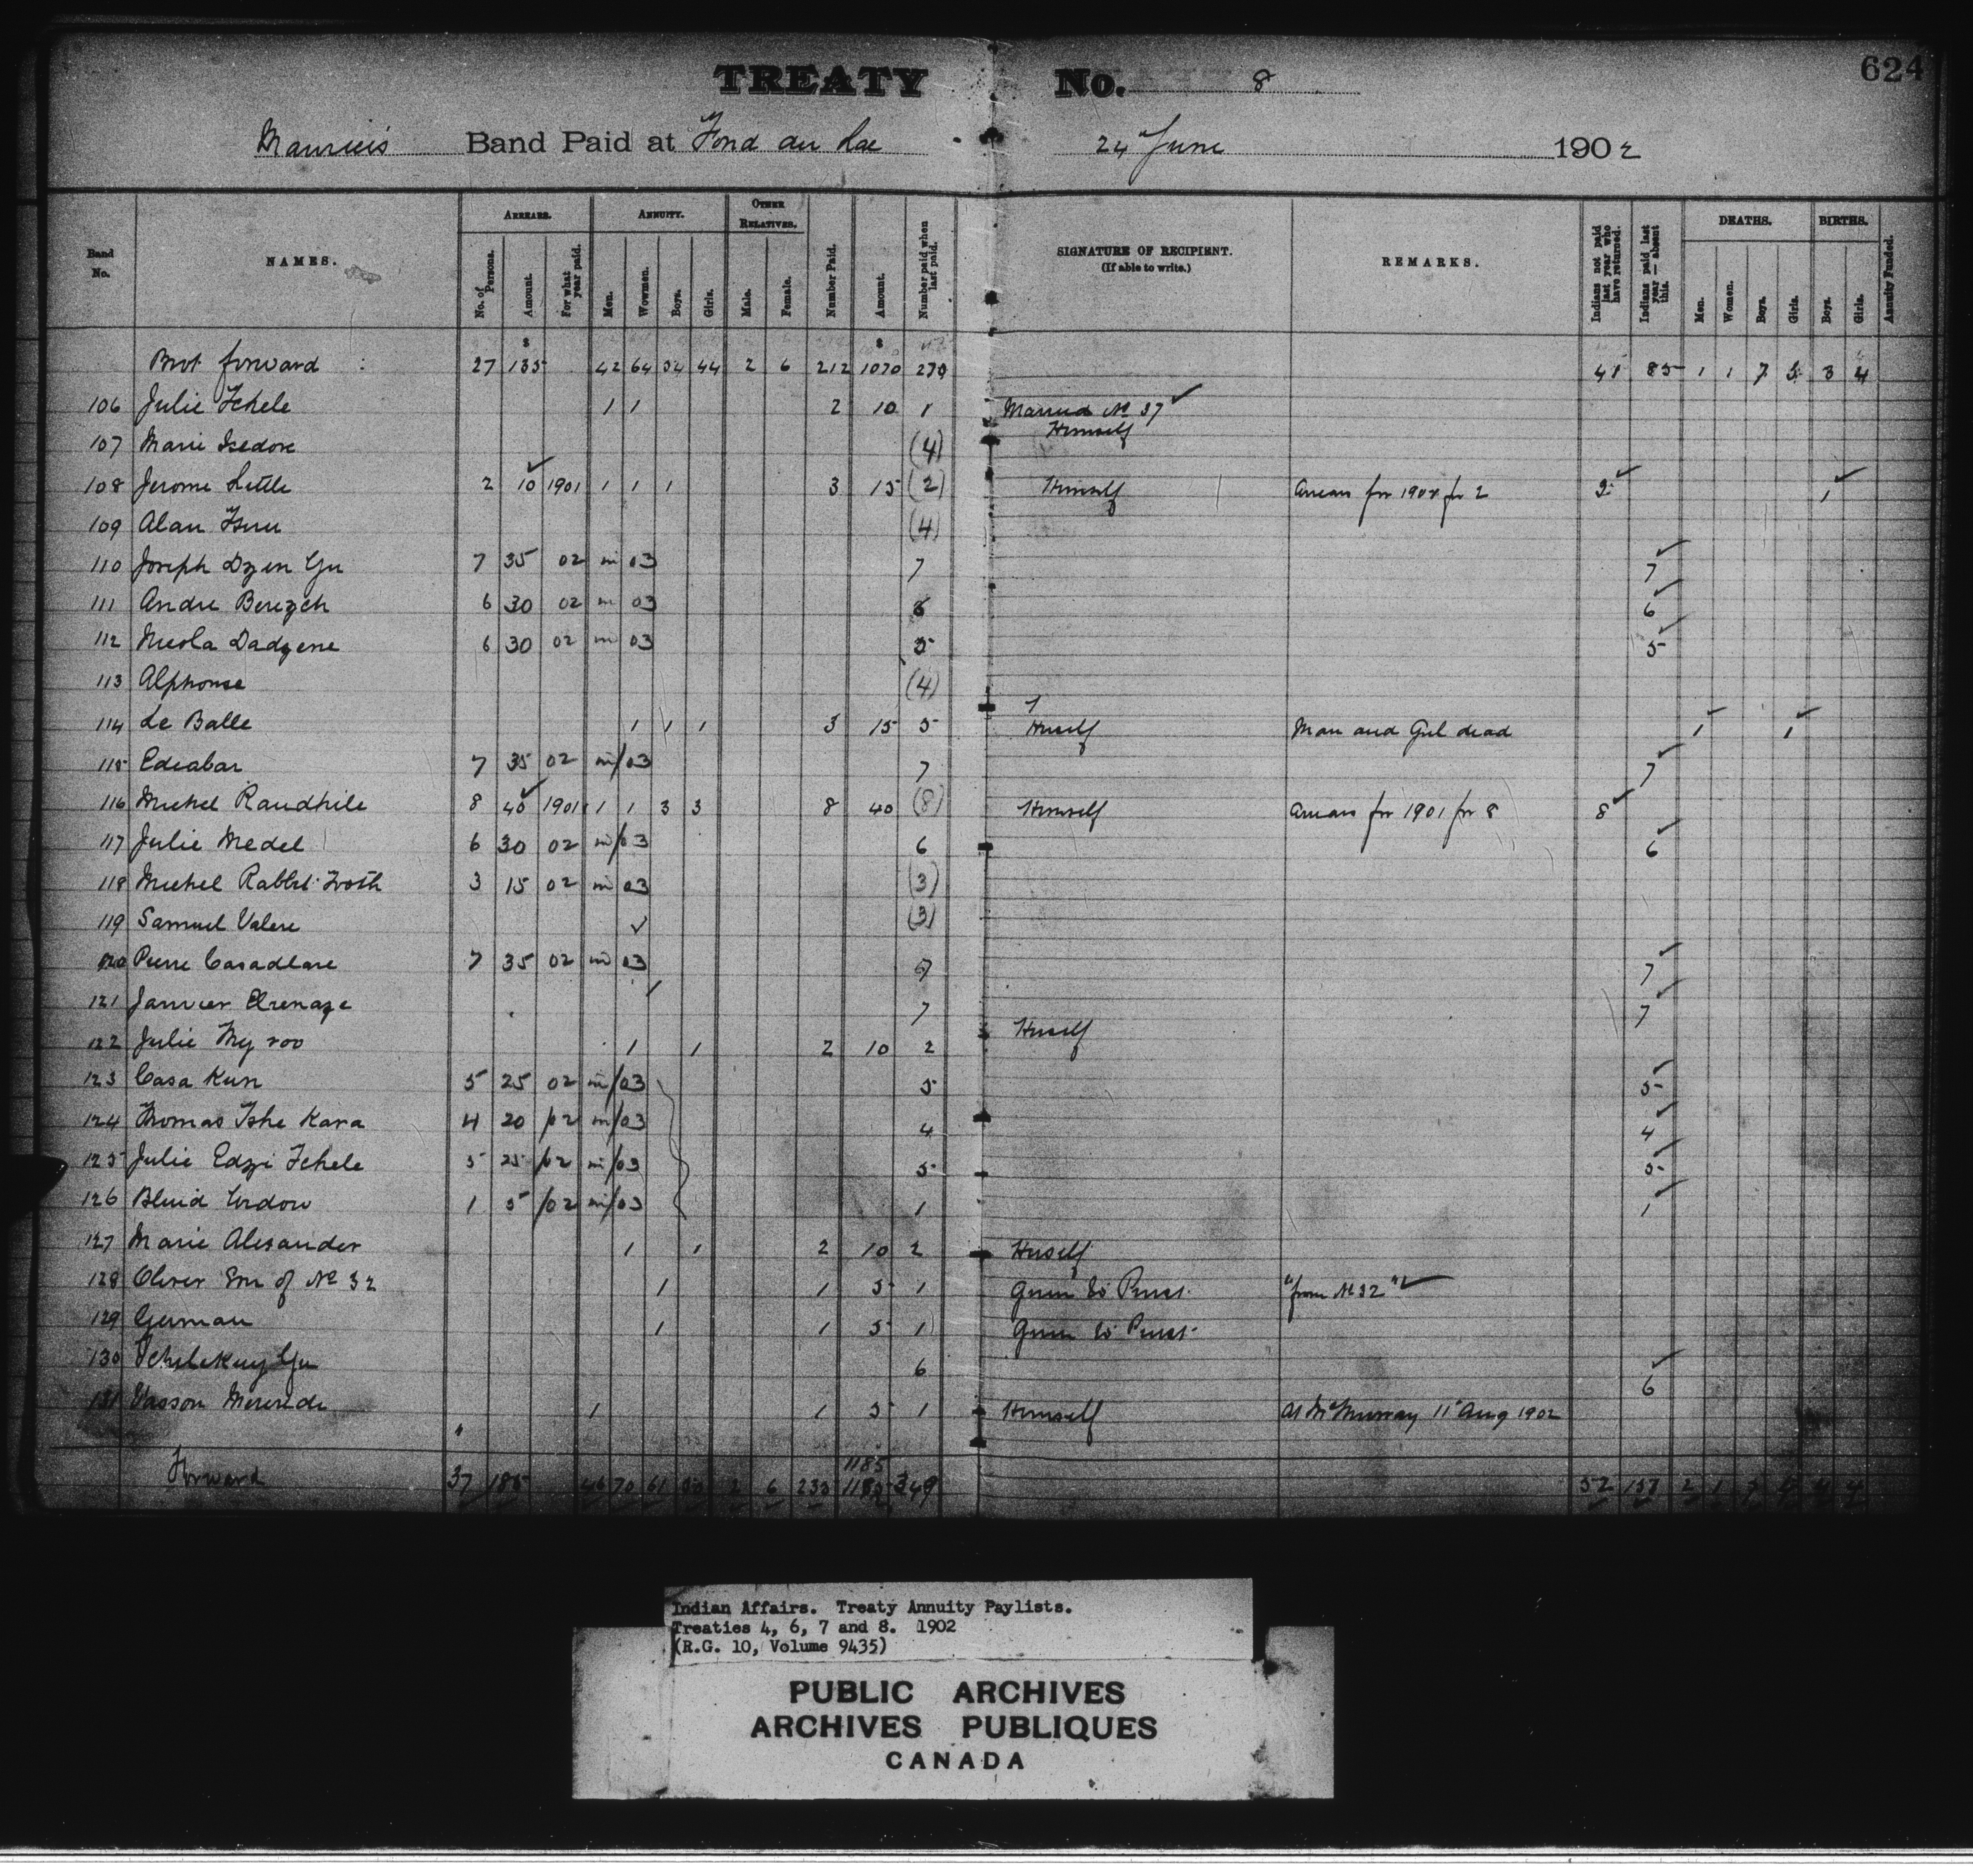 624
TREATY No. 8
Maurice's Band Paid at Fond du Lac 24 June 1902
Band No. NAMES. ARREARS. ANNUITY. OTHER RELATIVES. SIGNATURE OF RECIPIENT. (If able to write.) REMARKS. DEATHS. BIRTHS.
No. of Persons. Amount. For what year paid. Men. Wowmen. Boys. Girls. Male. Female. Number Paid. Amount. Number paid when last paid. Indians not paid last year who have returned. Indians paid last year — absent this. Men. Women. Boys. Girls. Boys. Girls. Annuity Funded.
Brot forward 27 135 42 64 54 44 2 6 212 1070 270 41 85 1 1 7 5 3 4
106 Julie Tchele 1 1 2 10 1 Married No 37 ✓ Himself
107 Marie Isedore (4)
108 Jerome Little 2 10 ✓ 1901 1 1 1 3 15 (2) Himself Arrears for 1901 for 2 2 ✓ 1 ✓
109 Alan (4)
110 Joseph Dzen Yu 7 35 02 in 03 7 7 ✓
111 Andre Berezch 6 30 02 in 03 6 6 ✓
112 Nicola Dadzene 6 30 02 in 03 5 5 ✓
113 Alphonse (4)
114 Le Balle 1 1 1 3 15 5 Herself Man and Girl dead 1 ✓ 1 ✓
115 Edeabar 7 35 02 in/03 7 7 ✓
116 Michel Raudhile 8 40 ✓ 1901 1 1 3 3 8 40 (8) Himself Arrears for 1901 for 8 8 ✓
117 Julie Medel 6 30 02 in/03 6 6 ✓
118 Michel Rabbit Froth 3 15 02 in 03 (3)
119 Samuel Valere ✓ (3)
120 Pierre Casadlare 7 35 02 in 03 7 7 ✓
121 Janvier Elrenaze 7 7 ✓
122 Julie My roo 1 1 2 10 2 Herself
123 Casa Kun 5 25 02 in/03 5 5 ✓
124 Thomas Tshe Kara 4 20 /02 in/03 4 4 ✓
125 Julie Edzi Tchele 5 25 /02 in/03 5 5 ✓
126 Blind 1 5 /02 in/03 1 1 ✓
127 Marie Alexander 1 1 2 10 2 Herself
128 Oliver Son of No 32 1 1 5 1 Given to Priest "from No 32" ✓
129 German 1 1 5 1 Given to Priest
130 Yu 6 6 ✓
131 Vasson 1 1 5 1 Himself At McMurray 11 Aug 1902
1185
Forward 37 185 46 70 61 50 2 6 235 1185 349 52 157 2 1 7 4 4
Indian Affairs. Treaty Annuity Paylists.
Treaties 4, 6, 7 and 8. 1902
(R.G. 10, Volume 9435)
PUBLIC ARCHIVES
ARCHIVES PUBLIQUES
CANADA